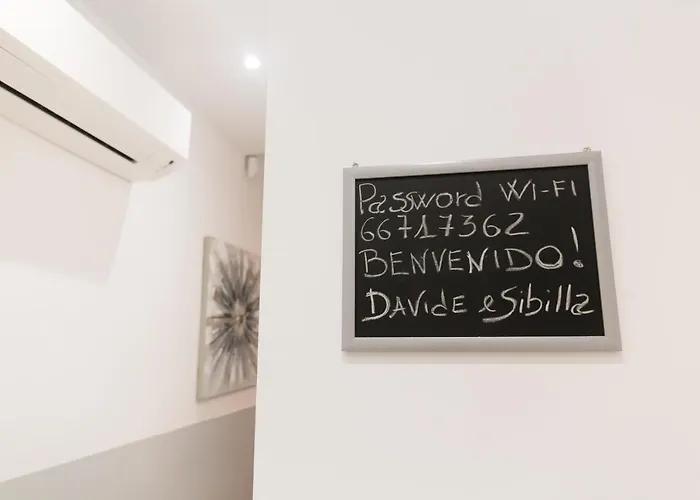 Password Wi-Fi
66717362
BENVENIDO!
DAVIDE e Sibilla